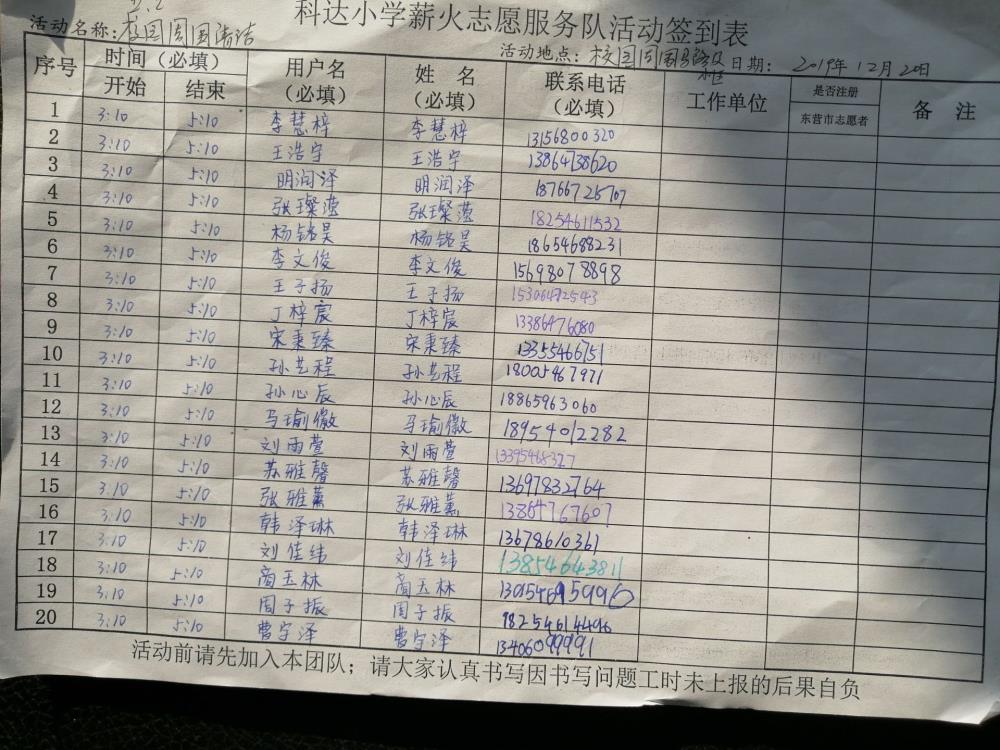 科达小学薪火志愿服务队活动签到表
活动名称：校园周围清洁 活动地点：校园周围 日期：2019年12月20日
序号 时间（必填） 用户名（必填） 姓名（必填） 联系电话（必填） 工作单位 是否注册东营市志愿者 备注
开始 结束
1 3:10 5:10 李慧梓 李慧梓 13156800320
2 3:10 5:10 王浩宇 王浩宇 13864738620
3 3:10 5:10 明润泽 明润泽 18766725707
4 3:10 5:10 张璨滢 张璨滢 18254611532
5 3:10 5:10 杨铭昊 杨铭昊 18654688231
6 3:10 5:10 李文俊 李文俊 15698078898
7 3:10 5:10 王子扬 王子扬 15306472543
8 3:10 5:10 丁梓宸 丁梓宸 13386476080
9 3:10 5:10 宋秉臻 宋秉臻 13355466751
10 3:10 5:10 孙艺程 孙艺程 18005467971
11 3:10 5:10 孙心辰 孙心辰 18865963060
12 3:10 5:10 马瑜徽 马瑜徽 18954012282
13 3:10 5:10 刘雨萱 刘雨萱 13395468327
14 3:10 5:10 苏雅馨 苏雅馨 13697832764
15 3:10 5:10 张雅薰 张雅薰 13864767607
16 3:10 5:10 韩泽琳 韩泽琳 13678610361
17 3:10 5:10 刘佳纬 刘佳纬 13854643811
18 3:10 5:10 蔺玉林 蔺玉林
19 3:10 5:10 周子振 周子振 18254614496
20 3:10 5:10 曹宇泽 曹宇泽 13406099991
活动前请先加入本团队；请大家认真书写因书写问题工时未上报的后果自负